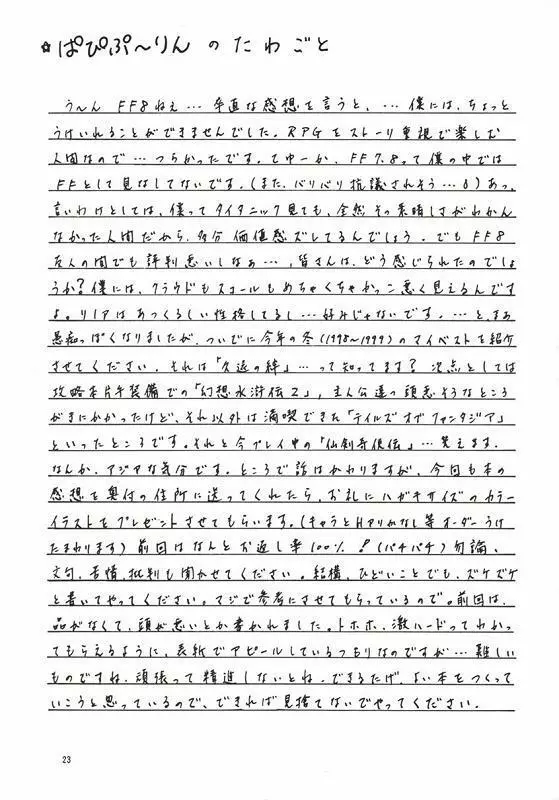 ☆ぱぴぷ〜りんのたわごと
う〜ん FF8ねぇ…率直な感想を言うと、…僕には、ちょっと
うけいれることができませんでした。RPGをストーリ重視で楽しむ
人間なので…つらかったです。てゆーか、FF7.8って僕の中では
FFとして見なしてないです。(また、バリバリ抗議されそう…) あっ、
言いわけとしては、僕ってタイタニック見ても、全然その素晴しさがわかん
なかった人間だから、多分価値感ズレてるんでしょう。でもFF8
友人の間でも評判悪いしなぁ…、皆さんは、どう感じられたのでしょ
うか?僕には、クラウドもスコールもめちゃくちゃかっこ悪く見えるんです
よ。リノアはあつくるしい性格してるし…好みじゃないです。…と、まぁ
愚痴っぽくなりましたが、ついでに今年の冬(1998〜1999)のマイベストを紹介
させてください。それは「久遠の絆」…って知ってます?次点としては
攻略本片手装備での「幻想水滸伝2」、主人公達の頭悪そうなところ
がきにかかったけど、それ以外は満喫できた「テイルズオブファンタジア」
といったところです。それと今プレイ中の「仙剣奇侠伝」…笑えます。
なんか、アジアな気分です。ところで話はかわりますが、今回も本の
感想を奥付の住所に送ってくれたら、お礼にハガキサイズのカラー
イラストをプレゼントさせてもらいます。(キャラとHアリかなし等オーダーうけ
たまわります)前回はなんとお返し率100%!(パチパチ)勿論、
文句、苦情、批判も聞かせてください。結構、ひどいことでも、ズケズケ
と書いてやってください。マジで参考にさせてもらっているので。前回は、
品がなくて、頭が悪いとか書かれました。トホホ、激ハードってわかっ
てもらえるように、表紙でアピールしているつもりなのですが…難しい
ものですね。頑張って精進しないとね。できるだけ、よい本をつくって
いこうと思っているので、できれば見捨てないでやってください。
23